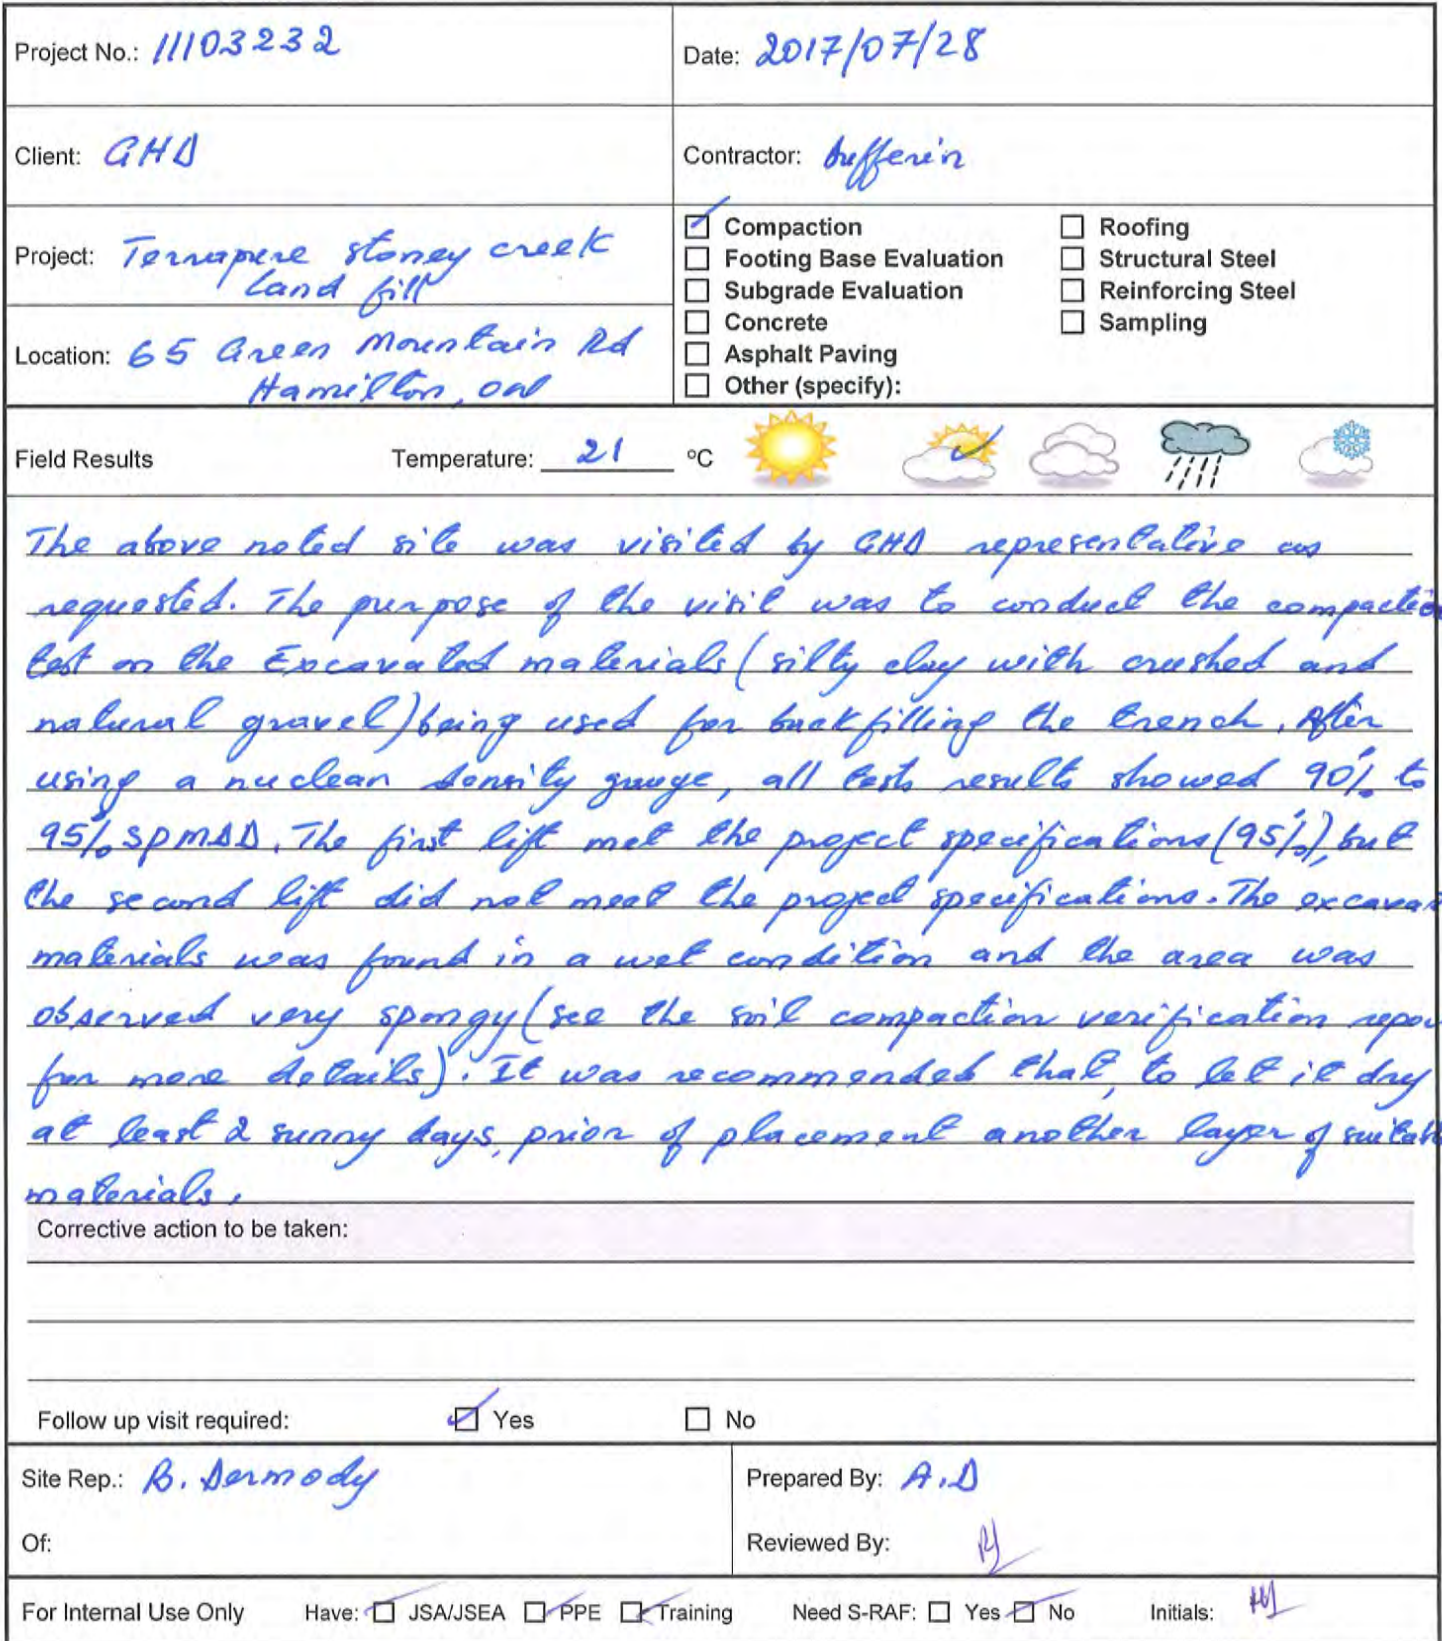 Project No.: 11103232
Date: 2017/07/28
Client: GHD
Contractor: Dufferin
Project: Terrapure stoney creek
land fill
Location: 65 Green Mountain Rd
Hamilton, ont
Compaction
Footing Base Evaluation
Subgrade Evaluation
Concrete
Asphalt Paving
Other (specify):
Roofing
Structural Steel
Reinforcing Steel
Sampling
Field Results Temperature: 21 °C
The above noted site was visited by GHD representative as
requested. The purpose of the visit was to conduct the compactio
test on the Excavated materials (silty clay with crushed and
natural gravel) being used for backfilling the trench. After
using a nuclear density gauge, all tests results showed 90% to
95% SPMDD. The first lift met the project specifications (95%), but
the second lift did not meet the project specifications. The excava
materials was found in a wet condition and the area was
observed very spongy (see the soil compaction verification repor
for more details). It was recommended that, to let it dry
at least 2 sunny days, prior of placement another layer of suitab
materials.
Corrective action to be taken:
Follow up visit required: Yes No
Site Rep.: B. Dermody
Of:
Prepared By: A.D
Reviewed By:
For Internal Use Only Have: JSA/JSEA PPE Training Need S-RAF: Yes No Initials: